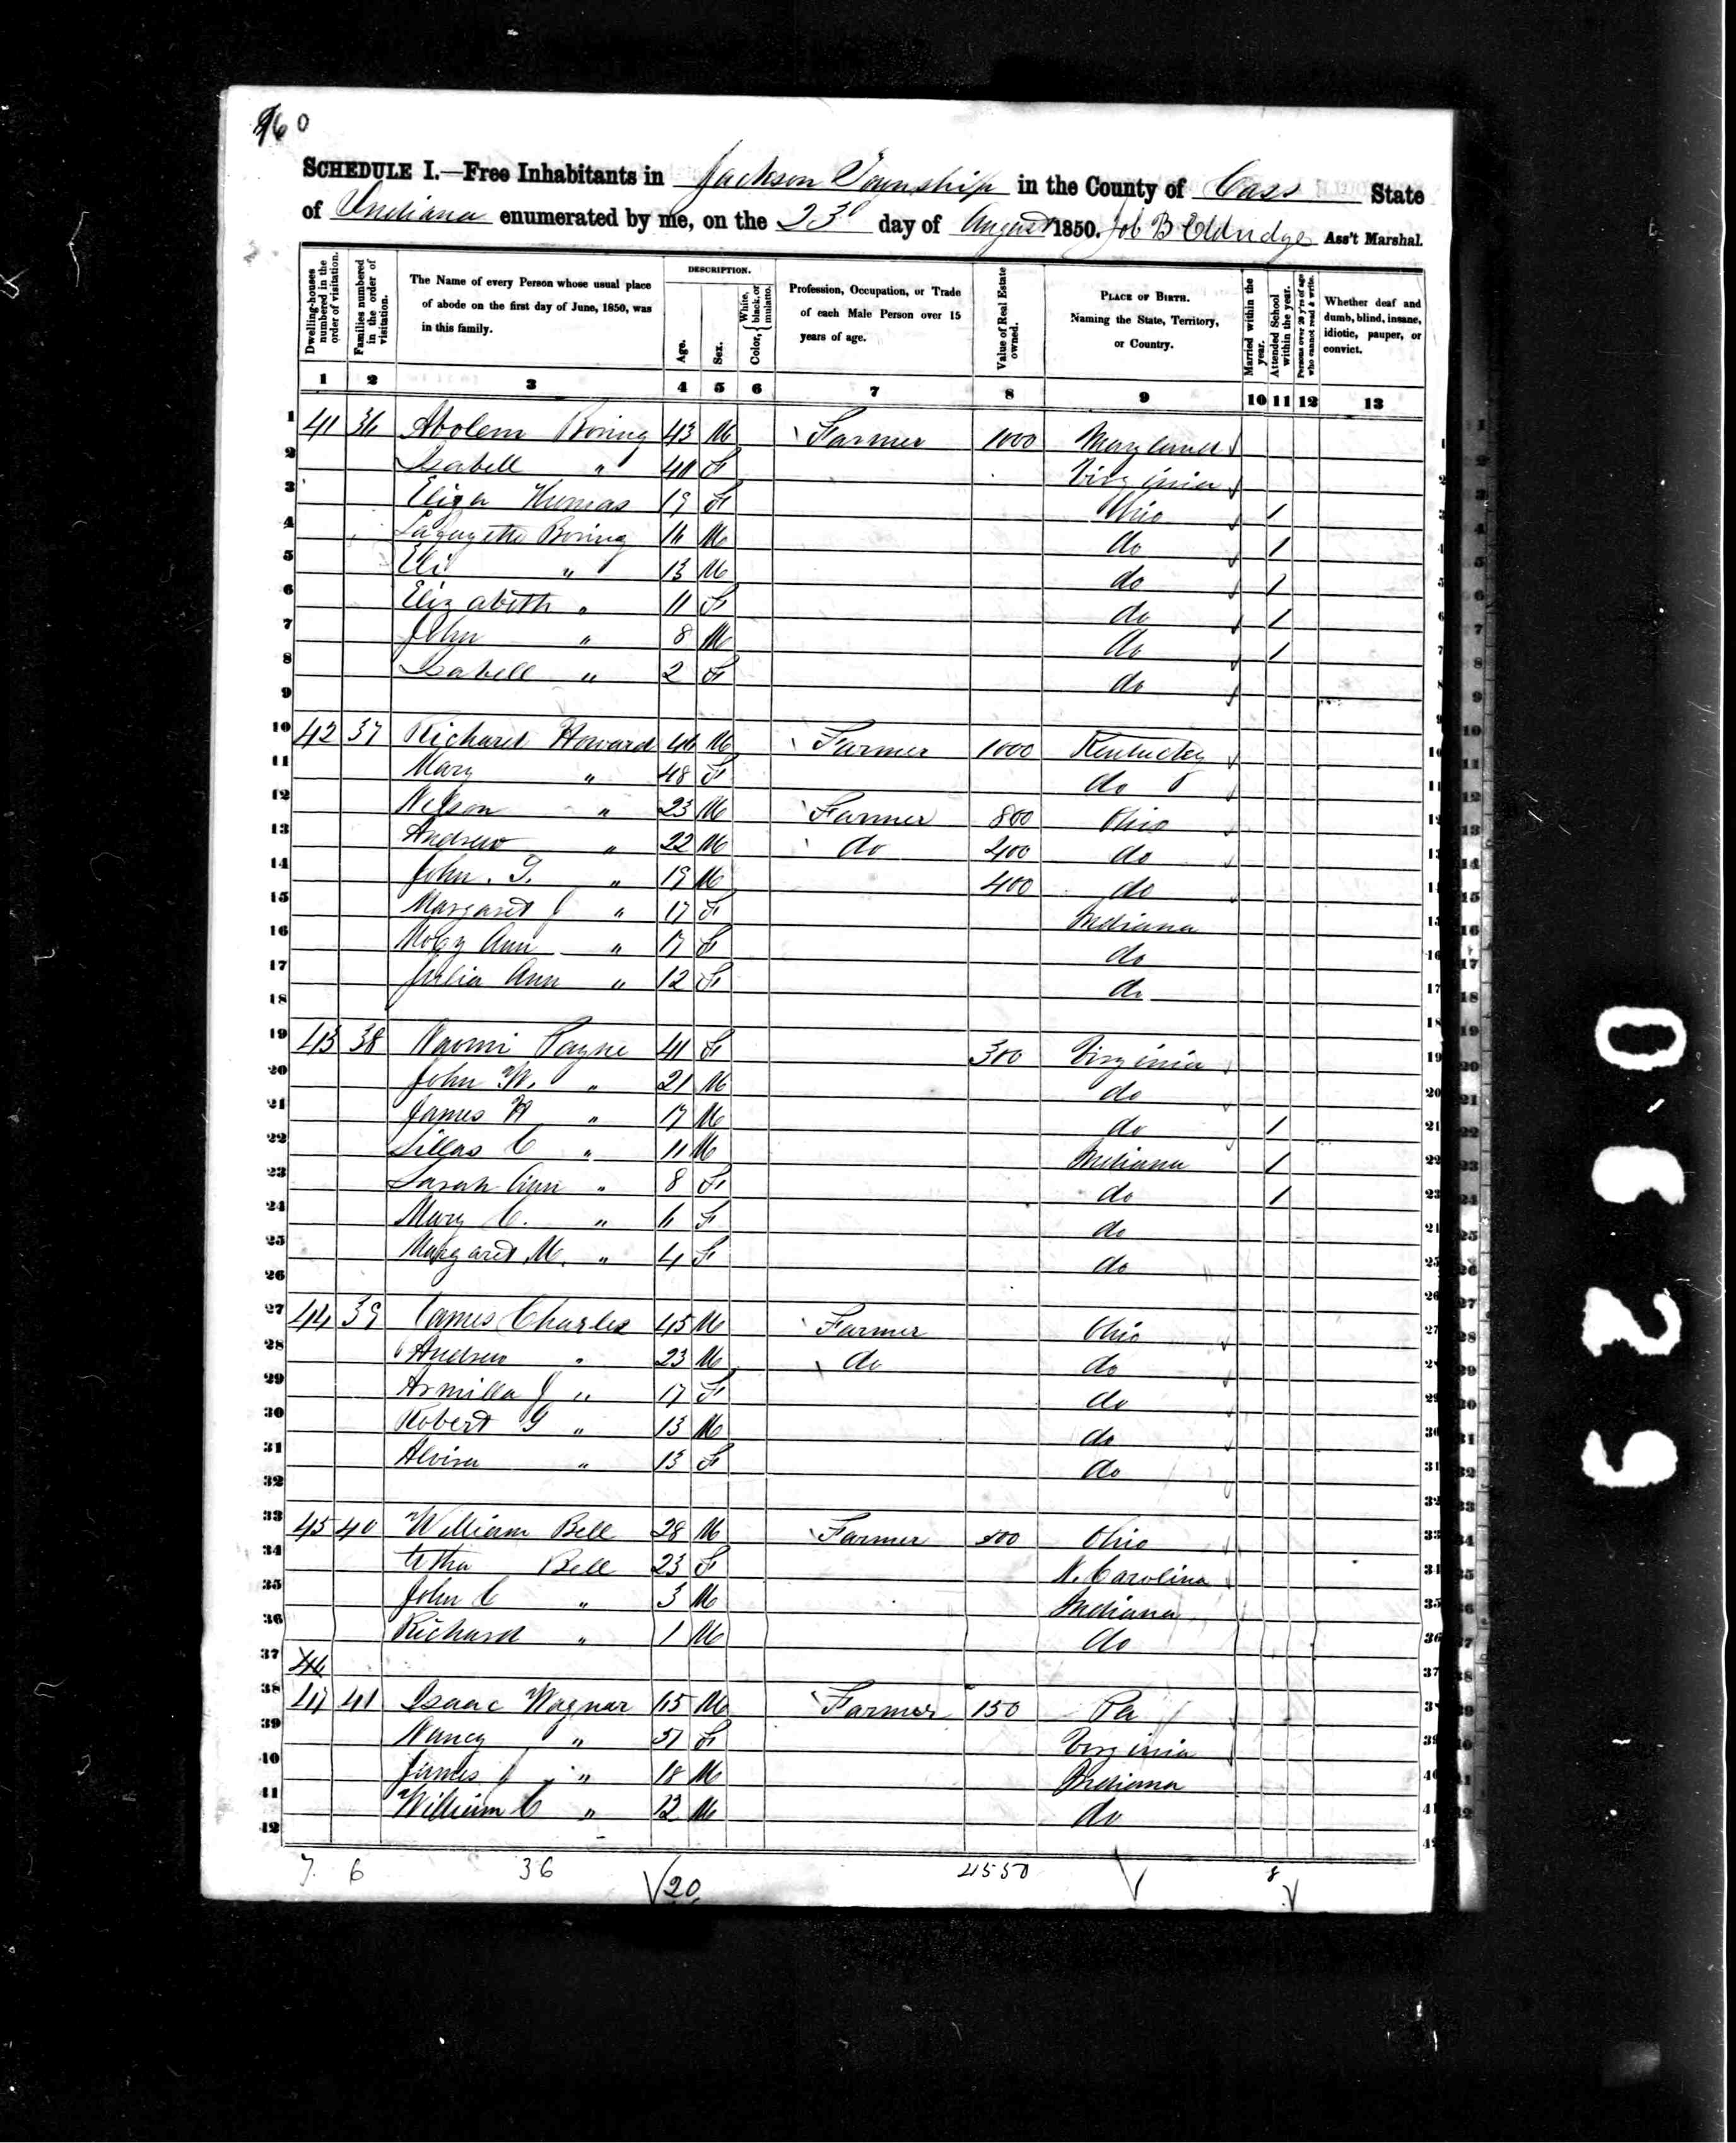 960
SCHEDULE I.—Free Inhabitants in Jackson Township in the County of Cass State
of Indiana enumerated by me, on the 23d day of August 1850. Job B Eldridge Ass't Marshal.
Dwelling-houses numbered in the order of visitation.
Families numbered in the order of visitation.
The Name of every Person whose usual place of abode on the first day of June, 1850, was in this family.
DESCRIPTION.
Age.
Sex.
Color, { White, black, or mulatto.
Profession, Occupation, or Trade of each Male Person over 15 years of age.
Value of Real Estate owned.
PLACE OF BIRTH. Naming the State, Territory, or Country.
Married within the year.
Attended School within the year.
Persons over 20 y'rs of age who cannot read & write.
Whether deaf and dumb, blind, insane, idiotic, pauper, or convict.
1 2 3 4 5 6 7 8 9 10 11 12 13
1 41 36 Abolem Boring 43 M Farmer 1000 Maryland 1
2 Isabell " F Virginia 2
3 Eliza Thomas 19 F Ohio 1 3
4 Lafayette Boring 16 M do 1 4
5 Eli " 13 M do 1 5
6 Elizabeth " 11 F do 1 6
7 John " 8 M do 1 7
8 Isabell " 2 F do 8
9 9
10 42 37 Richard Howard 46 M Farmer 1000 Kentucky 10
11 Mary " 48 F do 11
12 Nelson " 23 M Farmer 800 Ohio 12
13 Andrew " 22 M do 400 do 13
14 John. T. " 19 M 400 do 14
15 Margaret J " 17 F Indiana 15
16 Ann " 17 F do 16
17 Julia Ann " 12 F do 17
18 18
19 43 38 Naomi Payne 41 F 300 Virginia 19
20 John W. " 21 M do 20
21 James H " 17 M do 1 21
22 Sillas C " 11 M Indiana 1 22
23 Sarah Ann " 8 F do 1 23
24 Mary C. " 6 F do 24
25 Margaret M. " 4 F do 25
26 26
27 44 39 James Charles 45 M Farmer Ohio 27
28 Andrew " 23 M do do 28
29 Armilla J " 17 F do 29
30 Robert G " 13 M do 30
31 Alvira " 13 F do 31
32 32
33 45 40 William Bell 28 M Farmer 500 Ohio 33
34 Bell 23 F N. Carolina 34
35 John C " 3 M Indiana 35
36 Richard " 1 M do 36
37 46 37
38 47 41 Isaac Wagnar 65 M Farmer 150 Pa 38
39 Nancy " F Virginia 39
40 James J " 18 M Indiana 40
41 William C " 12 M do 41
42 42
7. 6 36 20 4550 8
0529